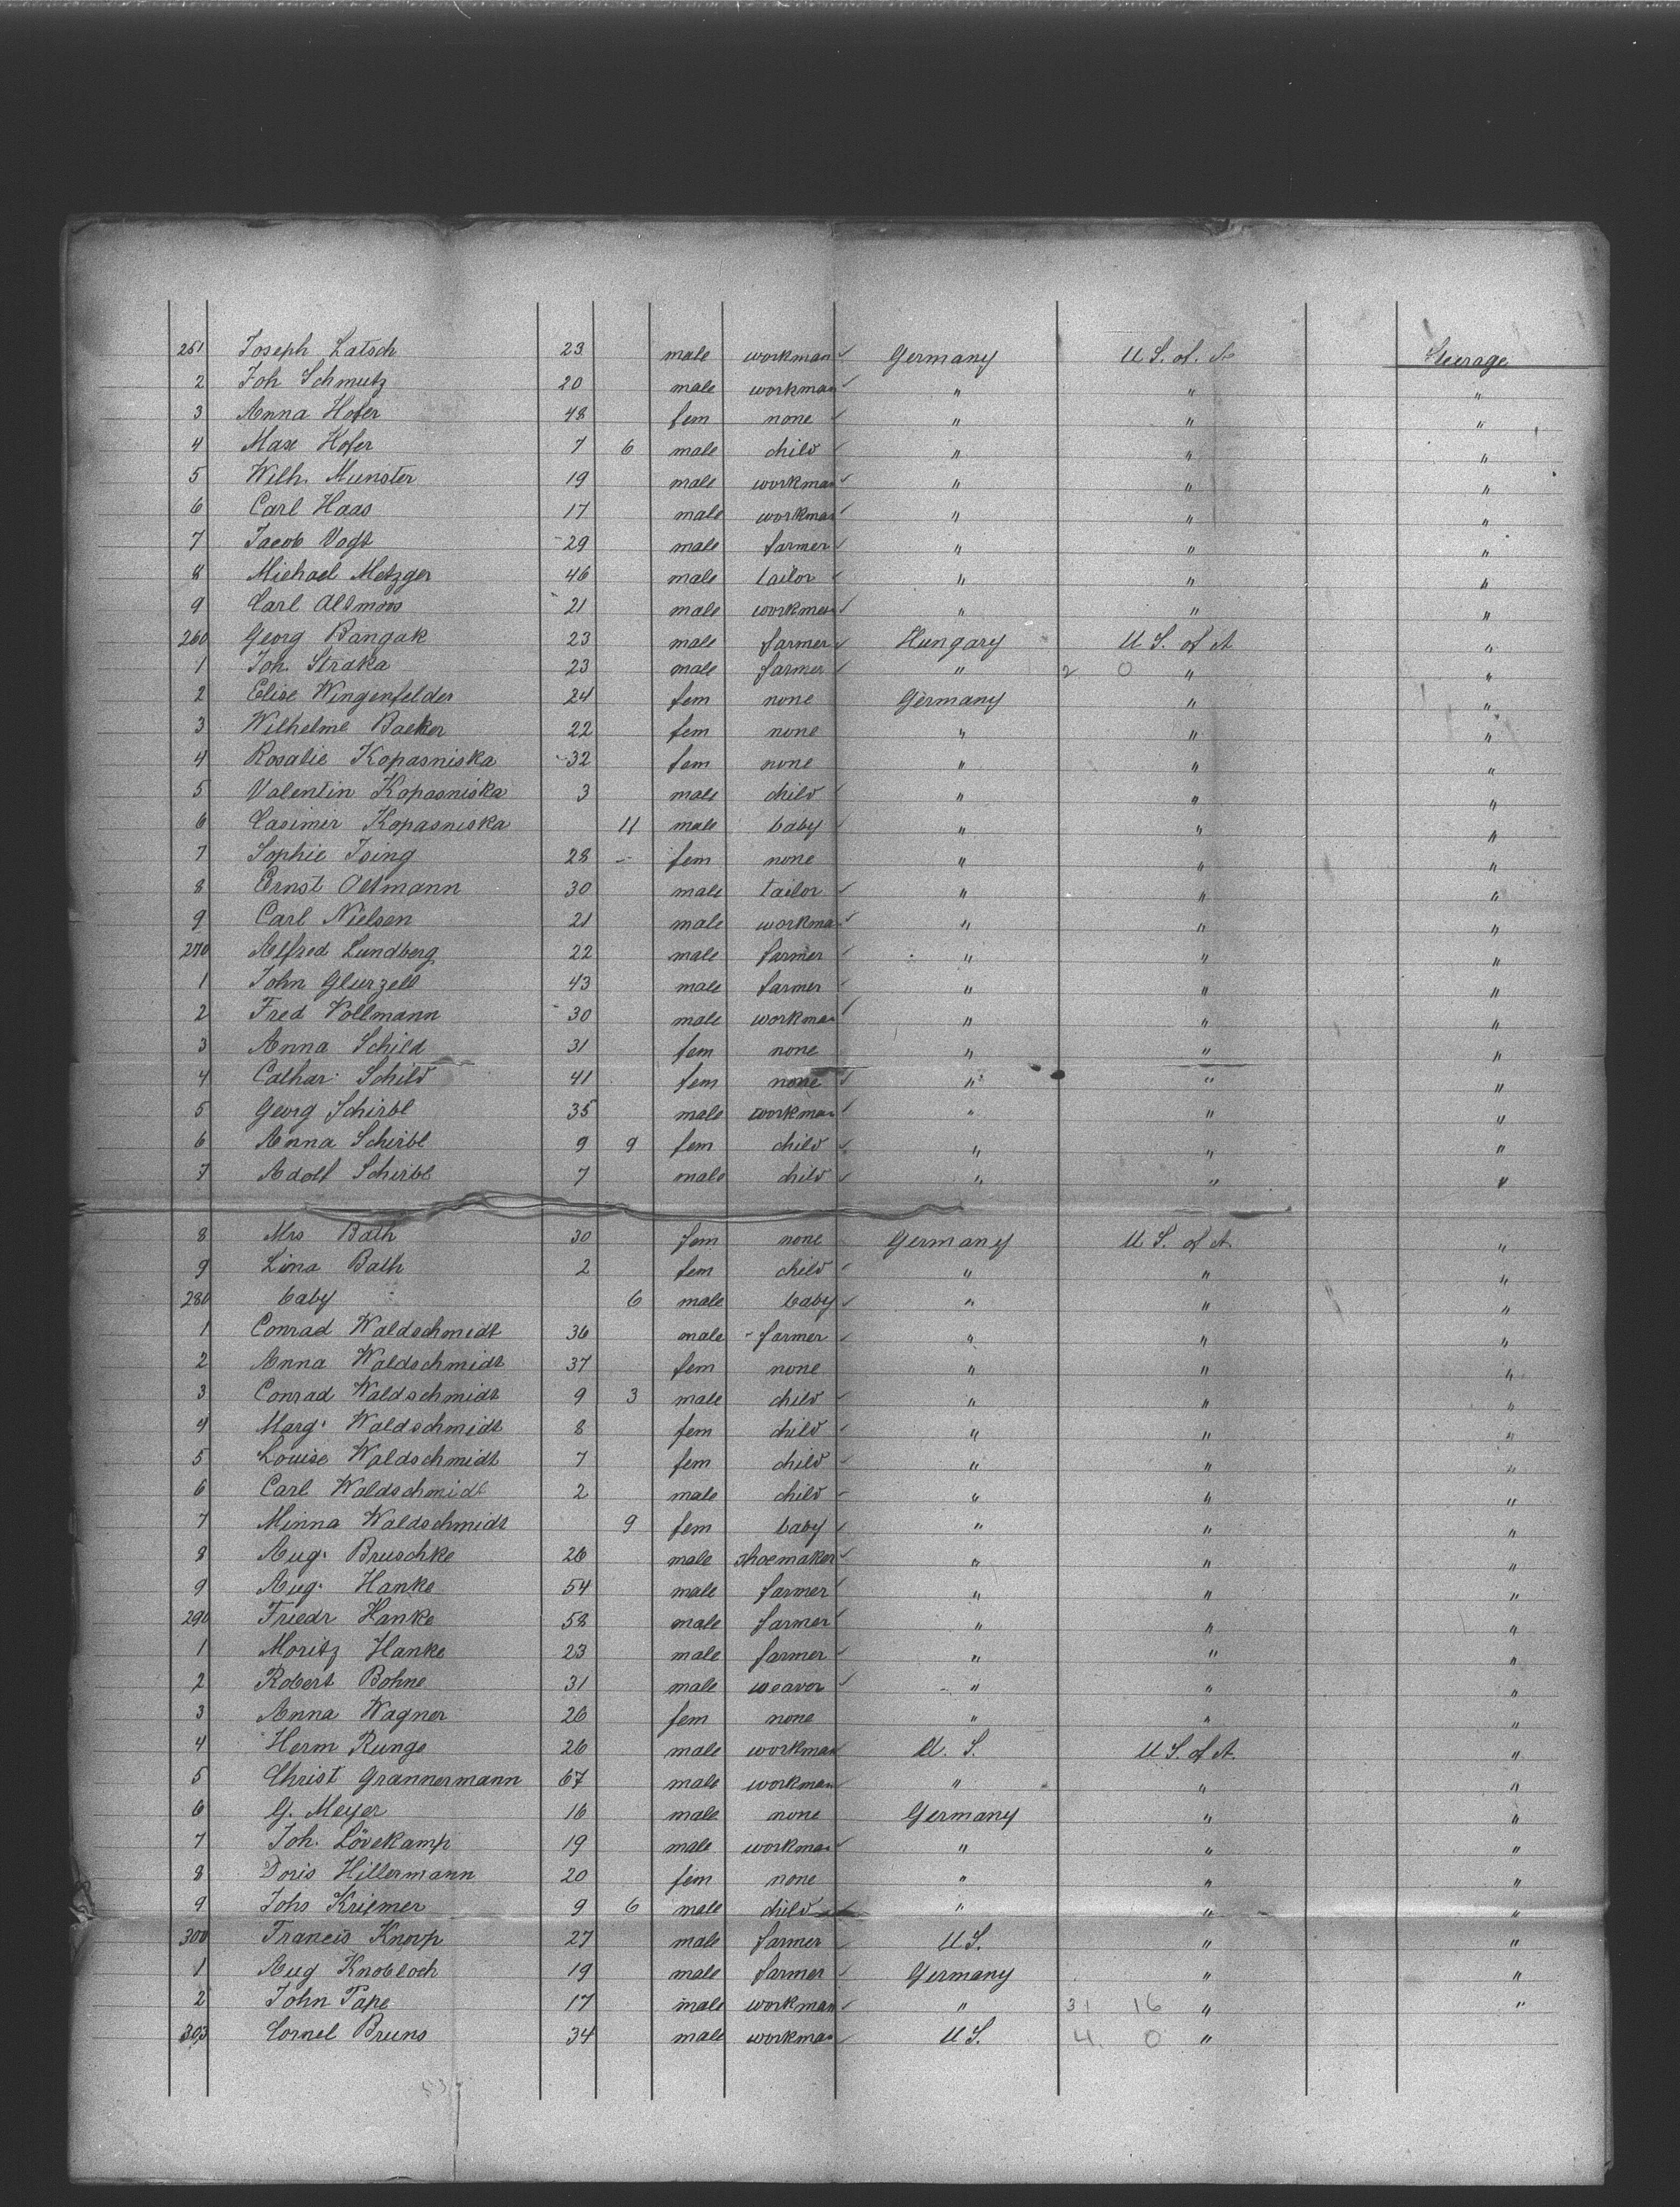 251 Joseph Latsch 23 male workman Germany U S. of. A Steerage
2 Joh Schmutz 20 male workman " " "
3 Anna Hofer 48 fem none " " "
4 Max Hofer 7 6 male child " " "
5 Wilh. Munster 19 male workman " " "
6 Carl Haas 17 male workman " " "
7 Jacob Vogt 29 male farmer " " "
8 Michael Metzger 46 male tailor " " "
9 Carl Altmoos 21 male workman " " "
260 Georg Bangak 23 male farmer Hungary U S. of A "
1 Joh. Straka 23 male farmer " 2 0 " "
2 Elise Wingenfelder 24 fem none Germany " "
3 Wilhelme Baeker 22 fem none " " "
4 Rosalie Kopasniska 32 fem none " " "
5 Valentin Kopasniska 3 male child " " "
6 Casimer Kopasniska 11 male baby " " "
7 Sophie Ising 28 fem none " " "
8 Ernst Oltmann 30 male tailor " " "
9 Carl Nielsen 21 male workman " " "
270 Alfred Lundberg 22 male farmer " " "
1 John Glurzell 43 male farmer " " "
2 Fred Vollmann 30 male workman " " "
3 Anna Schild 31 fem none " " "
4 Cathar. Schild 41 fem none " " "
5 Georg Schirbl 35 male workman " " "
6 Anna Schirbl 9 9 fem child " " "
7 Adolf Schirbl 7 male child " " "
8 Mrs Bath 30 fem none Germany U S. of A. "
9 Lina Bath 2 fem child " " "
280 baby 6 male baby " " "
1 Conrad Waldschmidt 36 male farmer " " "
2 Anna Waldschmidt 37 fem none " " "
3 Conrad Waldschmidt 9 3 male child " " "
4 Marg. Waldschmidt 8 fem child " " "
5 Louise Waldschmidt 7 fem child " " "
6 Carl Waldschmidt 2 male child " " "
7 Minna Waldschmidt 9 fem baby " " "
8 Aug. Bruschke 26 male shoemaker " " "
9 Aug. Hanke 54 male farmer " " "
290 Friedr Hanke 58 male farmer " " "
1 Moritz Hanke 23 male farmer " " "
2 Robert Bohne 31 male weavor " " "
3 Anna Wagner 26 fem none " " "
4 Herm Runge 26 male workman U. S. U S. of A. "
5 Christ Grannermann 67 male workman " " "
6 G. Meyer 16 male none Germany " "
7 Joh. Lövekamp 19 male workman " " "
8 Doris Hillermann 20 fem none " " "
9 Johs Kriemer 9 6 male child " " "
300 Francis Knorp 27 male farmer U S. " "
1 Aug Knobloch 19 male farmer Germany " "
2 John Pape 17 male workman " 31 16 " "
303 Cornel Bruns 34 male workman U S. 4. 0 "